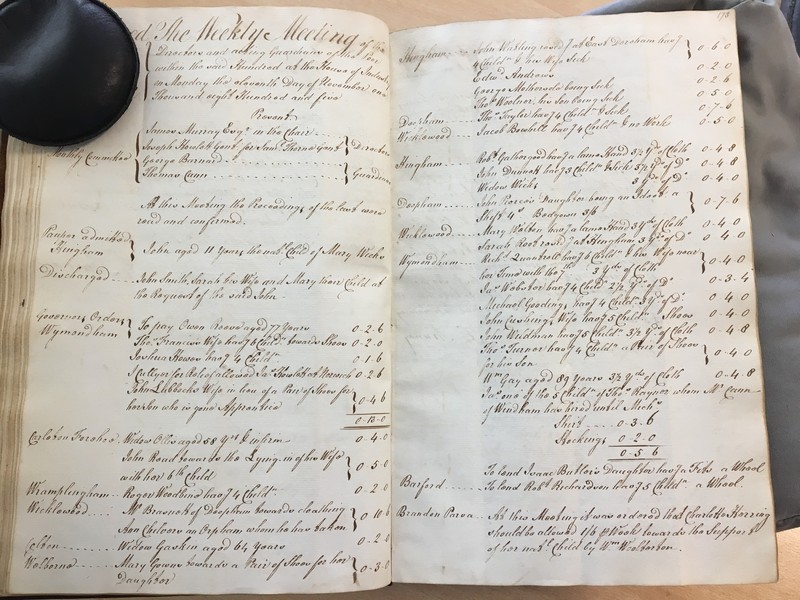 The Weekly Meeting of the
Directors and acting Guardians of the Poor
within the said Hundred at the House of Industry
on Monday the eleventh Day of November one
Thousand eight Hundred and five
Present
James Murray Esqr. in the Chair
Monthly Committee Joseph Howlett Gent for Saml. Thorne Gent } Directors
George Barnard
Thomas Cann } Guardians
At this Meeting the Proceedings of the last were
read and confirmed.
Pauper admitted
Hingham } John aged 11 Years the natl. Child of Mary Weeks
Discharged John Smith, Sarah his Wife and Mary their Child at
the Request of the said John
Governors Orders
Wymondham } To pay Owen Reeve aged 77 Years 0-2-6
Thos. Francis's Wife has 7 6 Childn. towards Shoes 0-2-0
Joshua Howes has 7 4 Childn. 0-1-6
for Relief allowed Jas. at Norwich 0-2-6
John Lubbock's Wife in lieu of a Pair of Shoes for
her Son who is gone Apprentice } 0-4-6
0-13-0
Carleton Forehoe Widow aged 58 Yrs. & infirm 0-4-0
John Read towards the Lying-in of his Wife
with her 6th Child } 0-5-0
Wramplingham Roger Woodbine has 7 4 Childn. 0-2-0
Wicklewood Mr. of Deopham towards cloathing
Ann an Orphan whom he has taken } 0-10-6
Widow Gaskin aged 64 Years 0-2-0
Welborne Mary towards a Pair of Shoes for her
Daughter } 0-3-0
Hingham John Watling resid. 7 at East Dereham has 7
4 Childn. & his Wife Sick } 0-6-0
Edwd. Andrews 0-2-0
George Mothersole being sick 0-2-6
Thos. Woolner, his Son being sick 0-5-0
Deopham Thos. Taylor has 7 4 Childn. & Sick 0-7-6
Wicklewood Jacob Bowhill has 7 4 Childn. & no Work 0-5-0
Hingham Robt. Gathergood has 7 a lame Hand 3½ Yds. of Cloth 0-4-8
John Dunnett has 7 5 Childn. & Sick 3½ Yds. of Do. 0-4-8
Widow Weeks 3 Yds. of Do. 0-4-0
Deopham John Daughter being an Ideot a
Shift 4s Bedgown 3/6 } 0-7-6
Wicklewood Mary Walton has 7 a lame Hand 3 Yds. of Cloth 0-4-0
Sarah resid. 7 at Hingham 3 Yds. of Do. 0-4-0
Wymondham Robt. Quantrell has 7 6 Childn. & his Wife near
her Time with the 7th 3 Yds. of Cloth } 0-4-0
Jas. Webster has 7 4 Childn. 2½ Yds. of Do. 0-3-4
Michael Gooding has 7 4 Childn. 3 Yds. of Do. 0 4-0
John Cushing, Wife has 7 5 Childn. Shoes 0 4-0
John Widman has 7 5 Childn. 3½ Yds. of Cloth 0-4-8
Thos. Turner has 7 4 Childn. a Pair of Shoes
for his Son } 0-4-0
Wm. Gay aged 89 Years 3½ Yds. of Cloth 0-4-8
Jas. one of the 5 Childn. of Thos. Raynor whom Mr. Cann
of Windham has hired until Michs.
Shirt 0-3-6
Stockings 0-2-0
0-5-6
To lend Isaac Butler's Daughter has 7 a Fits a Wheel
Barford To lend Robt. Richardson has 7 5 Childn. a Wheel.
Brandon Parva At this Meeting it was ordered that Charlotte Herring
should be allowed 1/6 ⅌ Week towards the Support
of her natl. Child by Wm.